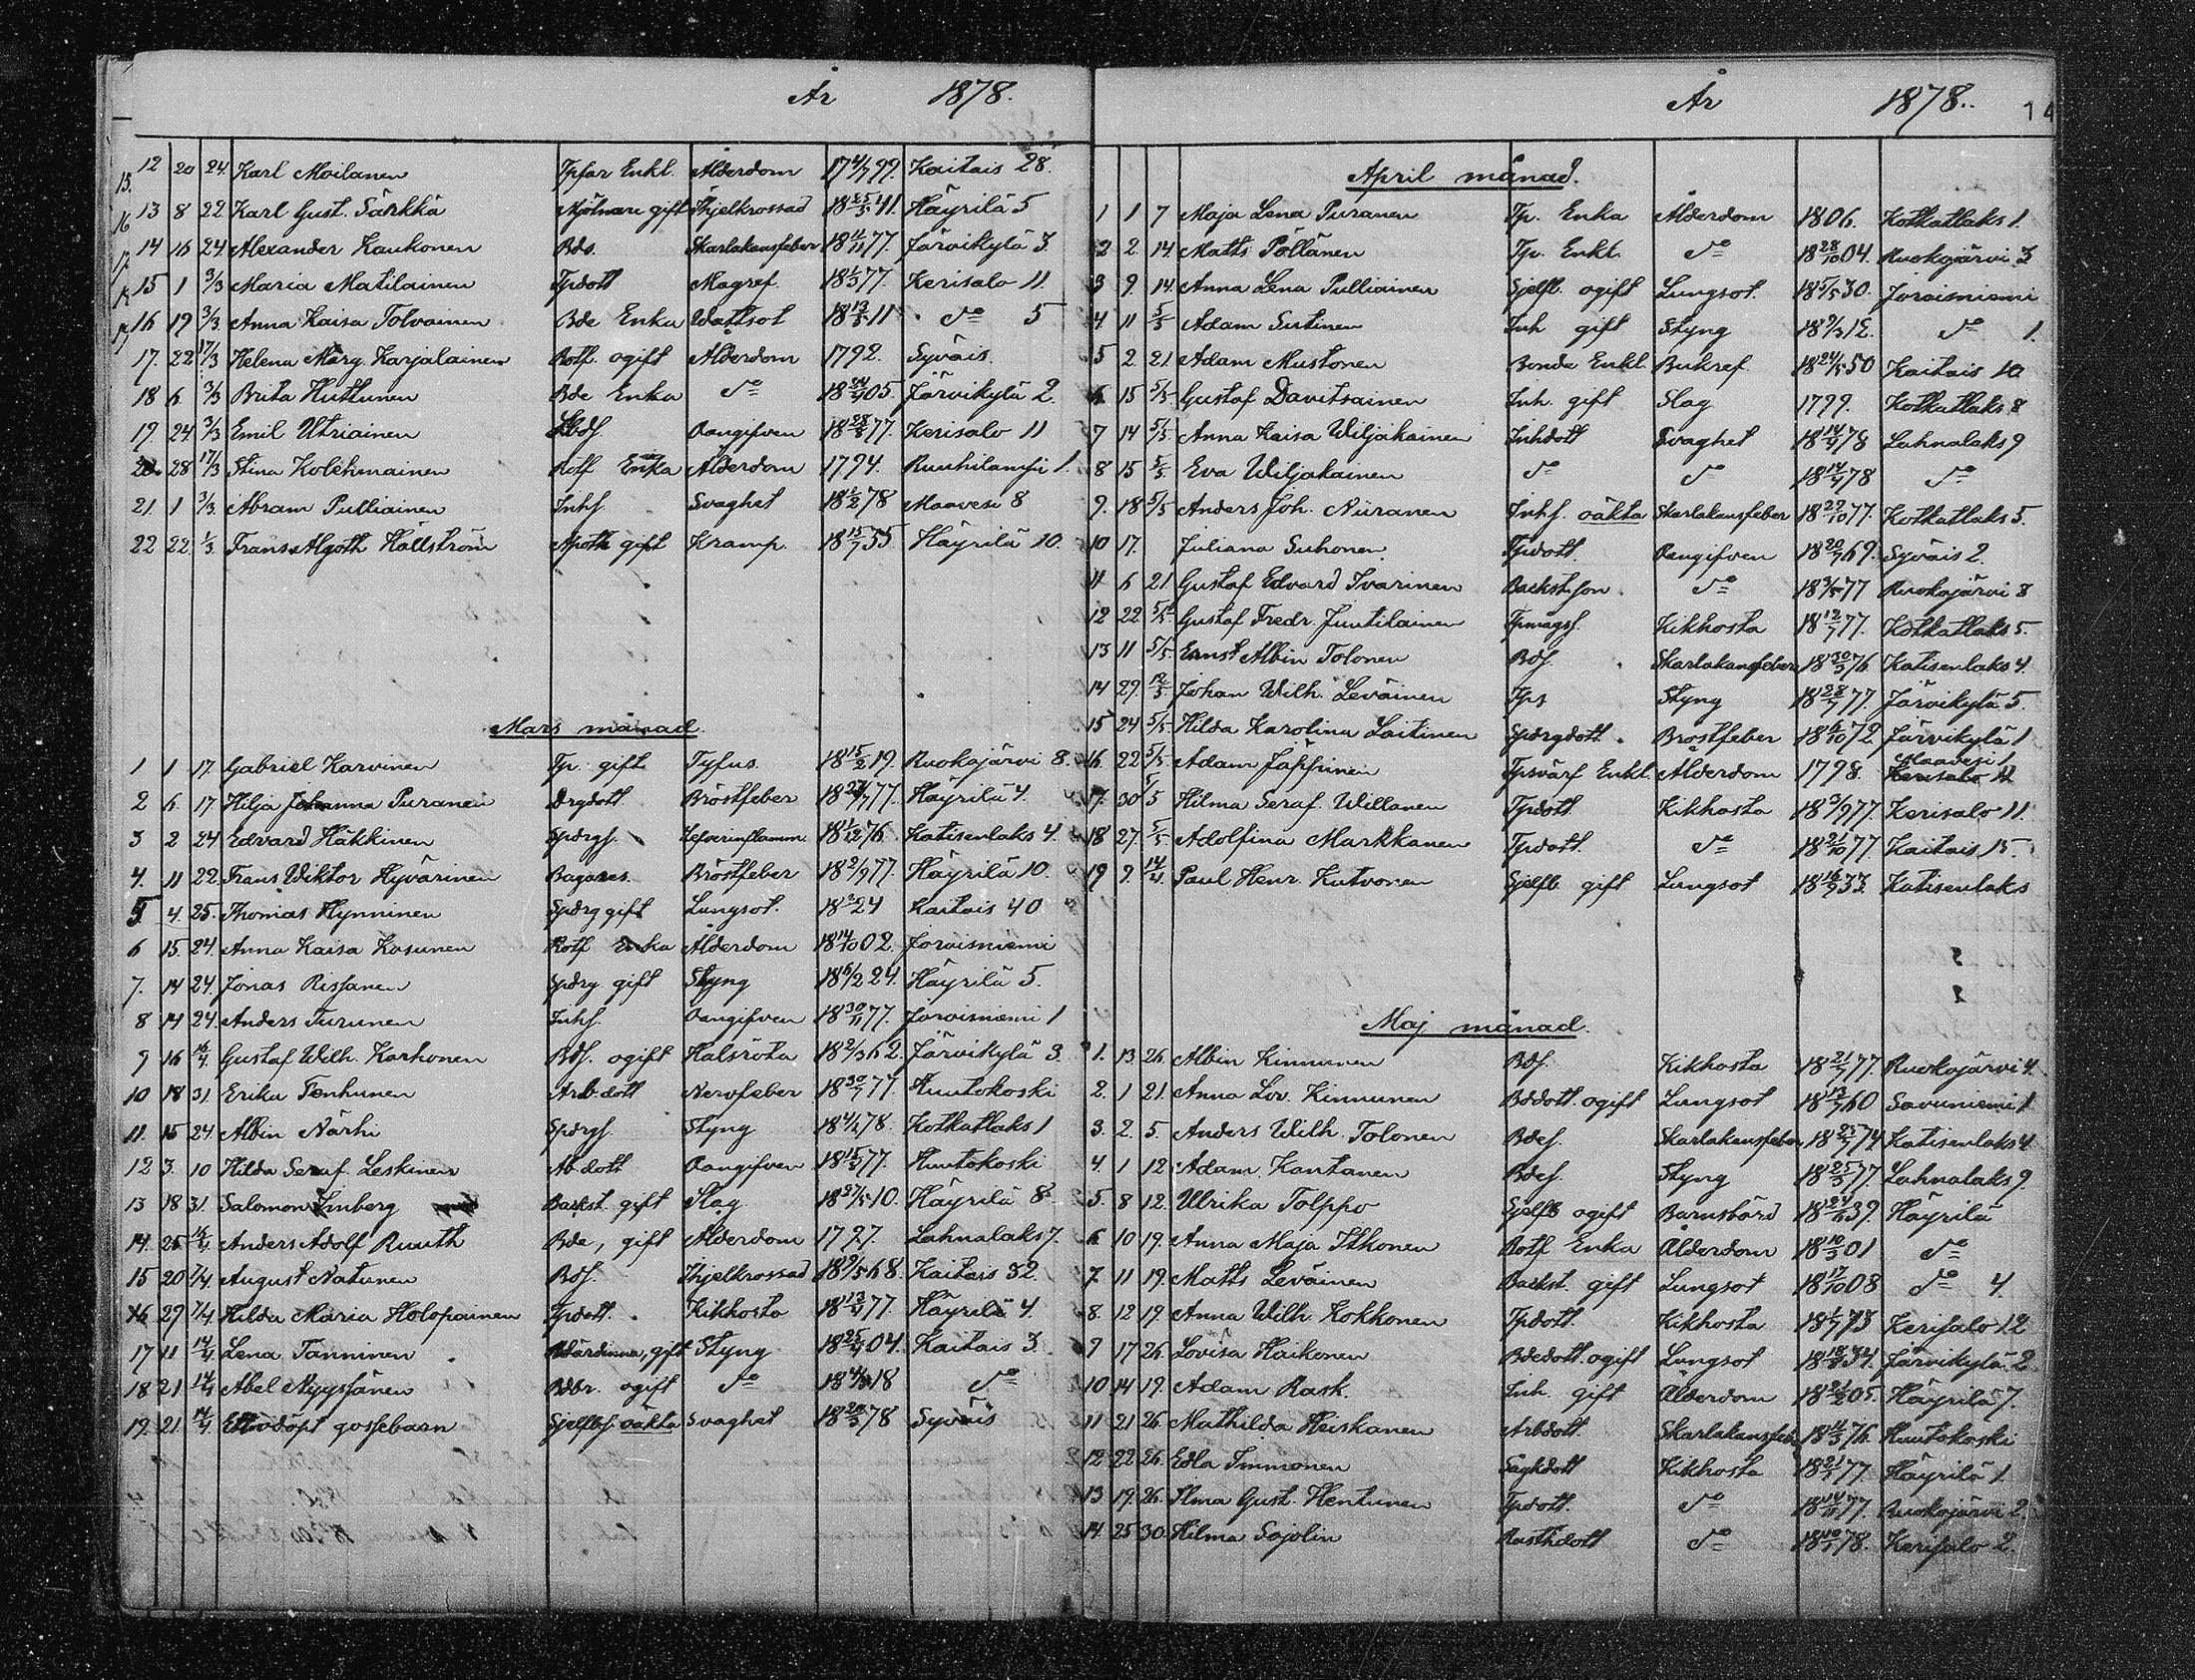 År 1878.
12 20 24. Karl Moilanen Tpfar Enkl. Ålderdom 17 4/7 99. Kaitais 28.
13 8 22 Karl Gust. Särkkä Mjölnare gift Ihjelkrossad 18 25/5 41. Häyrilä 5
14 16 24. Alexander Kaukonen Bds. Skarlakansfeber 18 11/11 77. Järvikylä 3.
15 1 3/3 Maria Matilainen Tpdott Magref. 18 1/3 77. Kerisalo 11.
16 19 3/3 Anna Kaisa Tolvainen Bde Enka Wattsot 18 13/5 11 do 5
17. 22 17/3 Helena Marg. Karjalainen Rotf. ogift Ålderdom 1792. Syväis.
18 6 3/3 Brita Huttunen Bde Enka do 18 05. Järvikylä 2.
19. 24 3/3 Emil Utriainen Oangifven 18 28/5 77. Kerisalo 11
20. 28 17/3 Stina Kolehmainen Rotf Enka Ålderdom 1794. Ruuhilampi 1.
21. 1 3/3. Abram Pulliainen Inhs. Svaghet 18 1/2 78 Maavesi 8
22 22 1/3 Frans Algoth Hällström Apoth gift Kramp. 18 15/7 35 Häyrilä 10.
Mars månad.
1 1 17. Gabriel Karvinen Tp. gift Tyfus. 18 15/2 19. Ruokojärvi 8.
2 6. 17. Hilja Johanna Puranen Drgdott Bröstfeber 18 77. Häyrilä 4.
3 2 24 Edvard Häkkinen Spdrgs. Lefverinflamm. 18 1/12 76. Katisenlaks 4.
4. 11 22. Frans Wiktor Hyvärinen Bagares. Bröstfeber 18 2/9 77. Häyrilä 10.
5 4. 25. Thomas Hynninen Spdrg gift Lungsot. 18 24 Kaitais 40
6 15. 24. Anna Kaisa Kosunen Rotf Enka Ålderdom 18 14/10 02. Joroisniemi
7. 14 24. Jonas Rissanen Spdrg gift Styng 18 6/2 24. Häyrilä 5.
8 14 24. Anders Turunen Inhs. Oangifven 18 30/11 77. Joroisniemi 1
9 16 14/4 Gustaf Wilh. Karhonen Bds. ogift Halsröta 18 2/3 62. Järvikylä 3.
10 18 31. Erika Tenhunen Arb. dott Nervfeber 18 30/7 77. Huutokoski
11. 15 24. Albin Närhi Spdrgs. Styng 18 4/1 78. Kotkatlaks 1
12 3. 10 Hilda Seraf. Leskinen Ab. dott Oangifven 18 15/3 77. Huutokoski
13 18 31. Salomon Linberg Backst. gift Slag 18 27/5 10. Häyrilä 8
14. 25 14/4 Anders Adolf Ruuth Bde, gift Ålderdom 1797. Lahnalaks 7.
15 20 7/4. August Natunen Bds. Ihjelkrossad 18 9/5 68. Kaitais 32.
16 27 7/4 Hilda Maria Holopainen Tpdott. Kikhosta 18 13/4 77 Häyrilä 4.
17 11 14/4 Lena Tanninen Wärdinna, gift Styng 18 25/4 04. Kaitais 3.
18 21 14/4 Abel Nyyssönen Bdbr. ogift do 18 18 do
19. 21 14/4. Ettnödöpt gossebarn Sjelfbs. oäkta Svaghet 18 20/3 78 Syväis
År 1878.. 14
April månad.
1 1 7 Maja Lena Puranen Tp. Enka Ålderdom 1806. Kotkatlaks 1.
2 2. 14. Matts Pöllänen Tp. Enkl. do 18 28/10 04. Ruokojärvi 3
3 9. 14. Anna Lena Pulliainen Sjelfb. ogift Lungsot. 18 5/5 30. Joroisniemi
4. 11 5/5 Adam Sutinen Inh gift Styng 18 9/3 12. do 1.
5 2. 21. Adam Mustonen Bonde Enkl. Bukref. 18 24/5 50 Kaitais 10
6 15 5/5 Gustaf Davitsainen Inh. gift Slag 1799. Kotkatlaks 8
7 14 5/5. Anna Kaisa Wiljakainen Inhdott Svaghet 18 14/4 78 Lahnalaks 9
8 15 5/5. Eva Wiljakainen do do 18 14/4 78 do
9. 18 5/5 Anders Joh. Niiranen Inhs. oäkta Skarlakansfeber 18 29/10 77. Kotkatlaks 5.
10 17. Juliana Suhonen. Tpdott. Oangifven 18 20/7 69. Syväis 2.
11 6 21 Gustaf Edvard Ivarinen Backst. son. do 18 3/5 77 Ruokojärvi 8
12 22 5/5 Gustaf Fredr. Juutilainen Tpmågs. Kikhosta 18 12/7 77. Kotkatlaks 5.
13 11 5/5 Ernst Albin Tolonen Bds. Skarlakansfeber 18 30/3 76 Katisenlaks 4.
14 29. 12/5. Johan Wilh. Leväinen Tps Styng 18 28/7 77. Järvikylä 5.
15 24 5/5. Hilda Karolina Laitinen Spdrgdott. Bröstfeber 18 72. Järvikylä 1
16. 22 5/5 Adam Jäppinen Tpsvärf Enkl. Ålderdom 1798. Maavesi 1 Kerisalo 11
17. 30 5/5 Hilma Seraf. Willanen Tpdott. Kikhosta 18 3/9 77. Kerisalo 11.
18 27. 5/5 Adolfina Markkanen Tpdott. do 18 21/10 77. Kaitais 15.
19 9. 14/4. Paul Henr. Kutvonen Sjelfb. gift Lungsot 18 16/9 33. Katisenlaks
Maj månad.
1. 13 26. Albin Kinnunen Bds. Kikhosta 18 21/7 77. Ruokojärvi 4.
2. 1 21. Anna Lov. Kinnunen Bddott. ogift Lungsot 18 13/7 60 Savuniemi 1
3. 2. 5. Anders Wilh. Tolonen Bdes. Skarlakansfeber 18 25/7 74 Katisenlaks 4
4. 1 12. Adam Kantanen Bdes. Styng 18 25/3 77. Lahnalaks 9
5. 8 12. Ulrika Tolppo Sjelfb ogift Barnsbörd 18 39. Häyrilä
6 10 19. Anna Maja Itkonen Rotf Enka Ålderdom 18 10/5 01 do
7. 11 19. Matts Leväinen Backst. gift Lungsot 18 17/10 08 do 4.
8. 12 19. Anna Wilh. Kokkonen Tpdott. Kikhosta 18 1/7 73 Kerisalo 12
9 17 26. Lovisa Haikonen Bdedott. ogift Lungsot 18 34. Järvikylä 2
10 14 19. Adam Rask. Inh. gift Ålderdom 18 21/2 05. Häyrilä 7.
11 21 26. Mathilda Heiskanen Arbdott. Skarlakansfeb. 18 14/3 76. Huutokoski
12 22 26. Edla Immonen Kikhosta 18 77. Häyrilä 1.
13 19. 26. Ilma Gust. Hentunen Tpdott. do 18 77. Ruokojärvi 2.
14. 25 30. Hilma Sojolin Rusthdott do 18 78. Kerisalo 2.